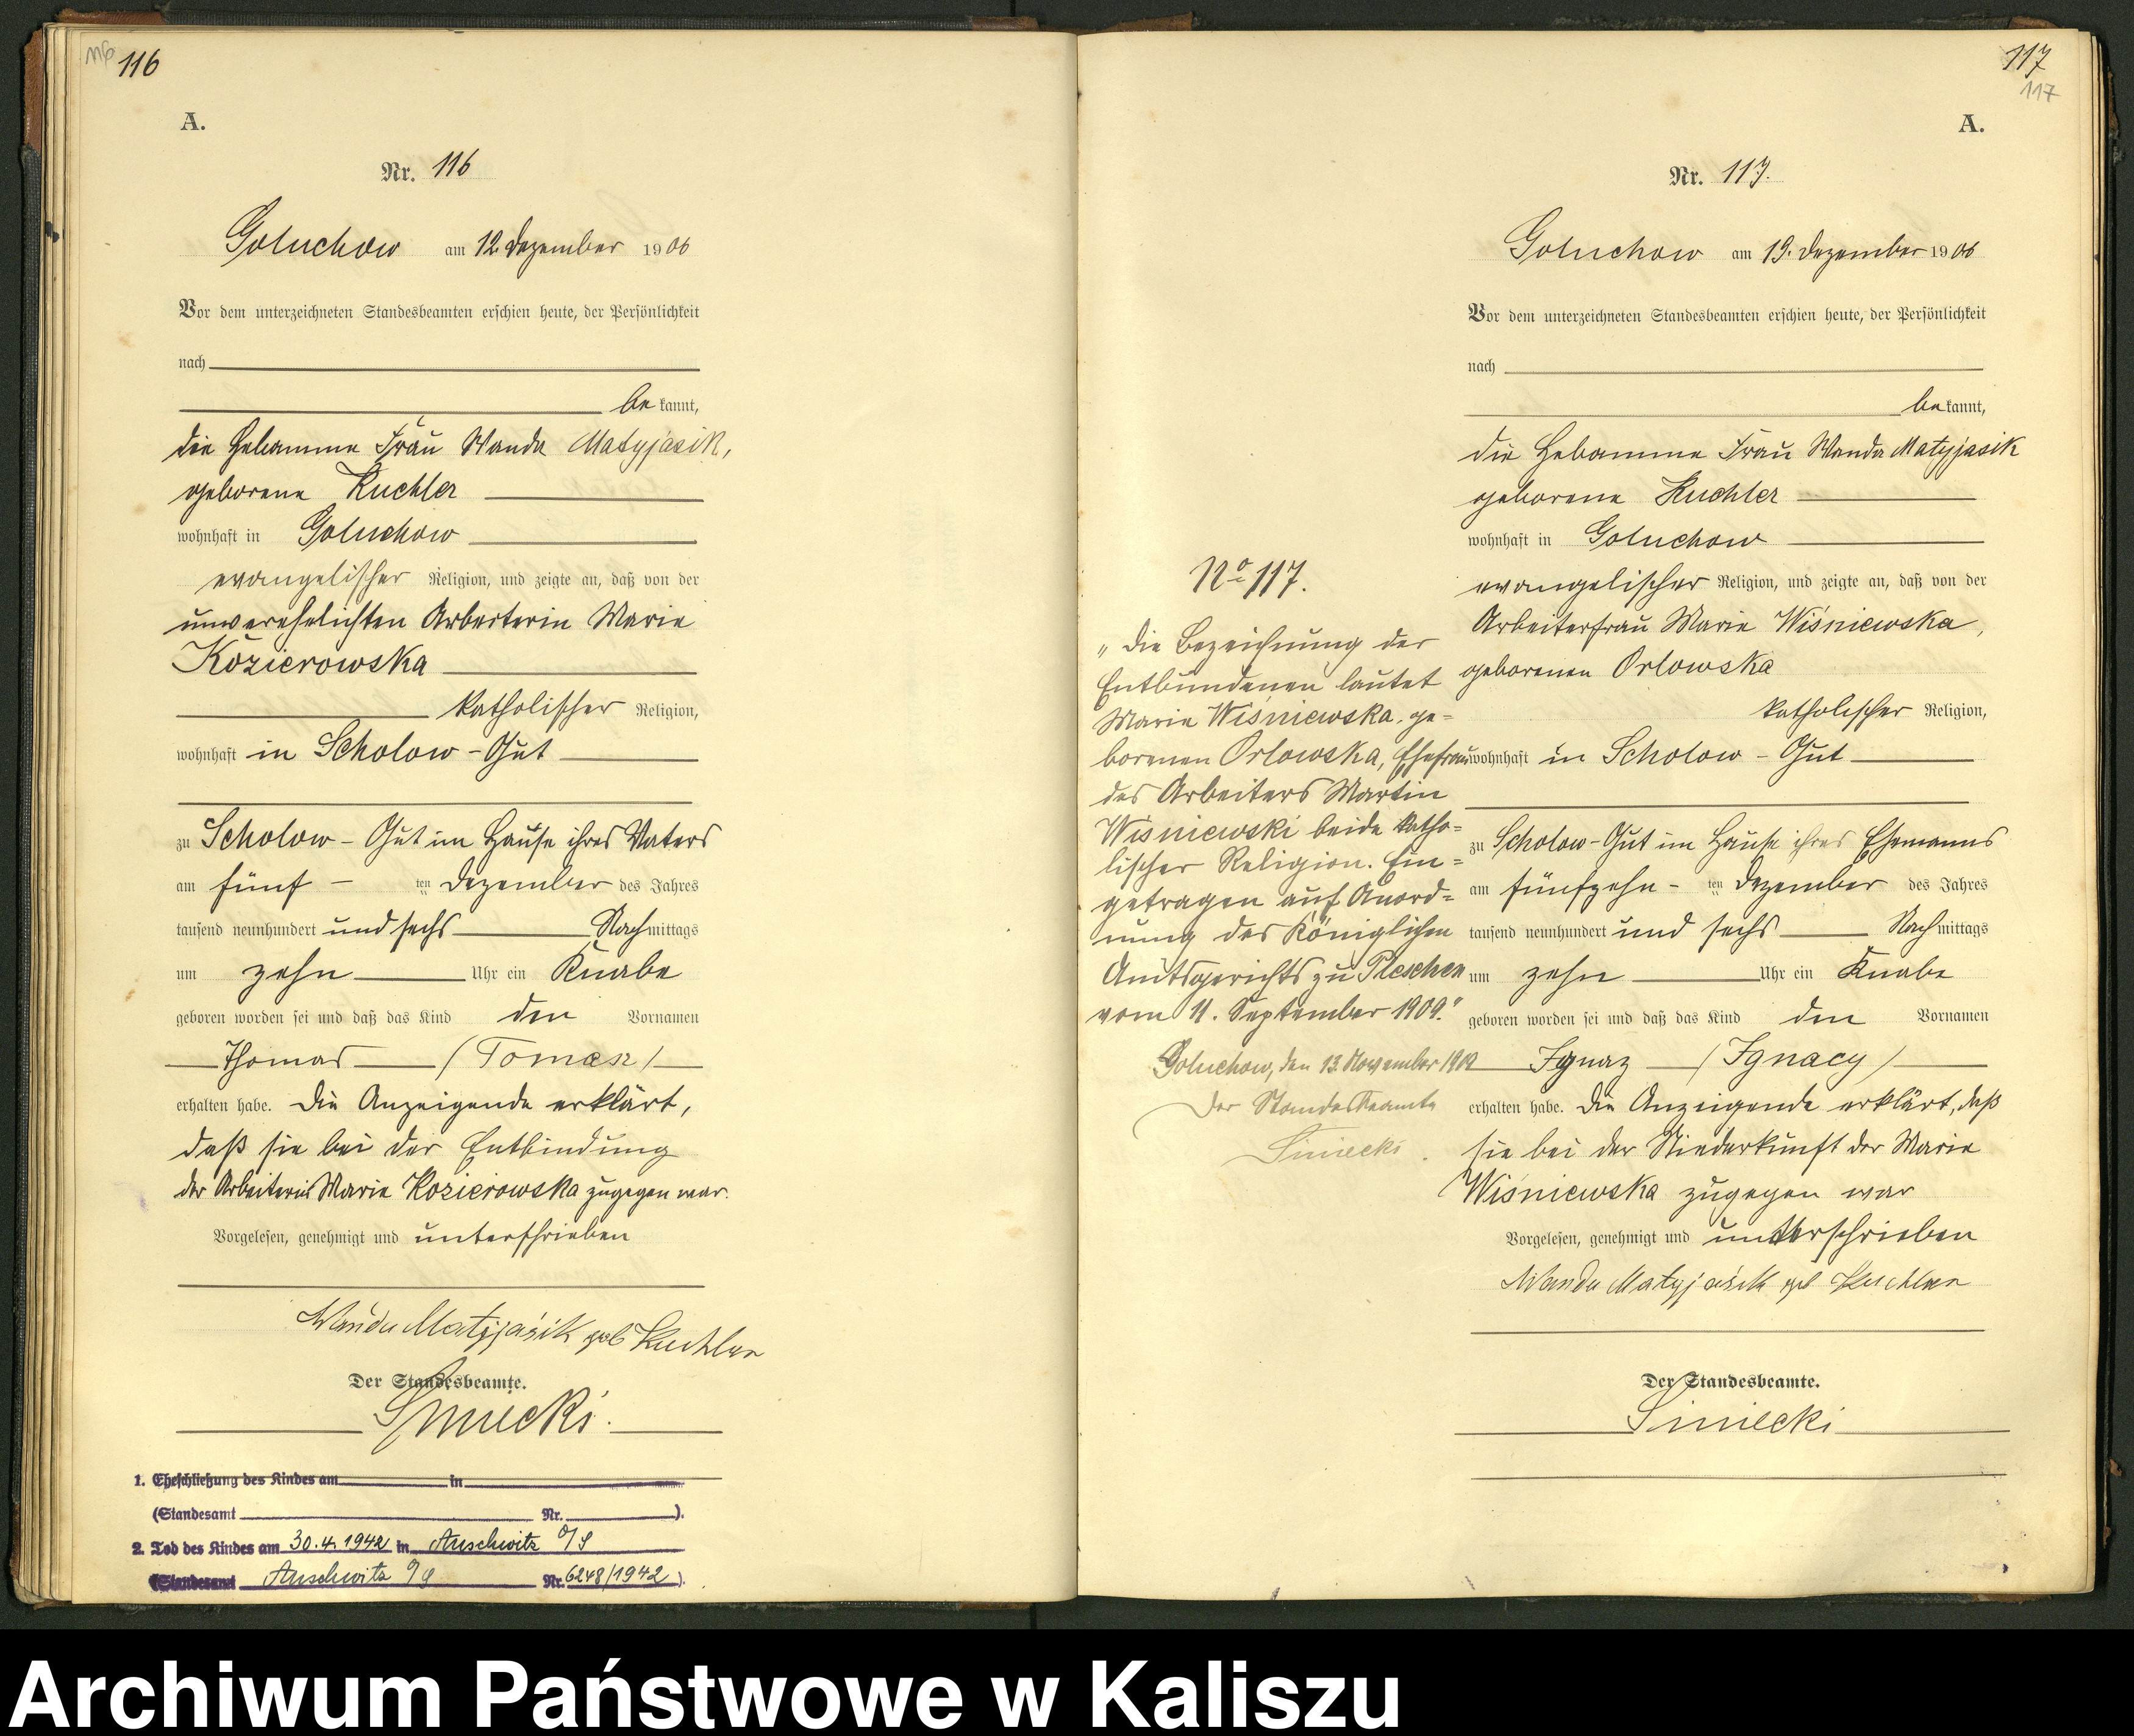 116
116
A.
Nr. 116
Goluchow am 12. Dezember 1906
Vor dem unterzeichneten Standesbeamten erschien heute, der Persönlichkeit
nach
be kannt,
die Hebamme Frau Wanda Matyjasik,
geborene Kuchler
wohnhaft in Goluchow
evangelischer Religion, und zeigte an, daß von der
unverehelichten Arbeiterin Marie
Kozierowska
katholischer Religion,
wohnhaft in Scholow-Gut
zu Scholow-Gut im Hause ihres Vaters
am fünf - ten Dezember des Jahres
tausend neunhundert und sechs Nachmittags
um zehn Uhr ein Knabe
geboren worden sei und daß das Kind den Vornamen
Thomas (Tomasz)
erhalten habe. Die Anzeigende erklärt,
daß sie bei der Entbindung
der Arbeiterin Marie Kozierowska zugegen war.
Vorgelesen, genehmigt und unterschrieben
Wanda Matyjasik geb Kuchler
Der Standesbeamte.
Siniecki.
1. Eheschließung des Kindes am in
(Standesamt Nr. ).
2. Tod des Kindes am 30.4.1942 in Auschwitz O/S
(Standesamt Auschwitz O/S Nr. 6248/1942).
117
117
A.
Nr. 117.
Goluchow am 19. Dezember 1906
Vor dem unterzeichneten Standesbeamten erschien heute, der Persönlichkeit
nach
be kannt,
die Hebamme Frau Wanda Matyjasik
geborene Kuchler
wohnhaft in Goluchow
evangelischer Religion, und zeigte an, daß von der
Arbeiterfrau Marie Wiśniewska,
geborenen Orlowska
katholischer Religion,
wohnhaft in Scholow - Gut
zu Scholow-Gut im Hause ihres Ehemanns
am fünfzehn - ten Dezember des Jahres
tausend neunhundert und sechs Nachmittags
um zehn Uhr ein Knabe
geboren worden sei und daß das Kind den Vornamen
Ignaz (Ignacy)
erhalten habe. Die Anzeigende erklärt, daß
sie bei der Niederkunft der Marie
Wiśniewska zugegen war
Vorgelesen, genehmigt und unterschrieben
Wanda Matyjasik geb Kuchler
Der Standesbeamte.
Siniecki
No 117.
"Die Bezeichnung der
Entbundenen lautet
Marie Wiśniewska, ge=
borenen Orlowska, Ehefrau
des Arbeiters Martin
Wisniewski beide katho=
lischer Religion. Ein=
getragen auf Anord=
nung des Königlichen
Amtsgerichts zu Pleschen
vom 11. September 1909."
Goluchow, den 13. November 1909
Der Standesbeamte
Siniecki.
Archiwum Państwowe w Kaliszu